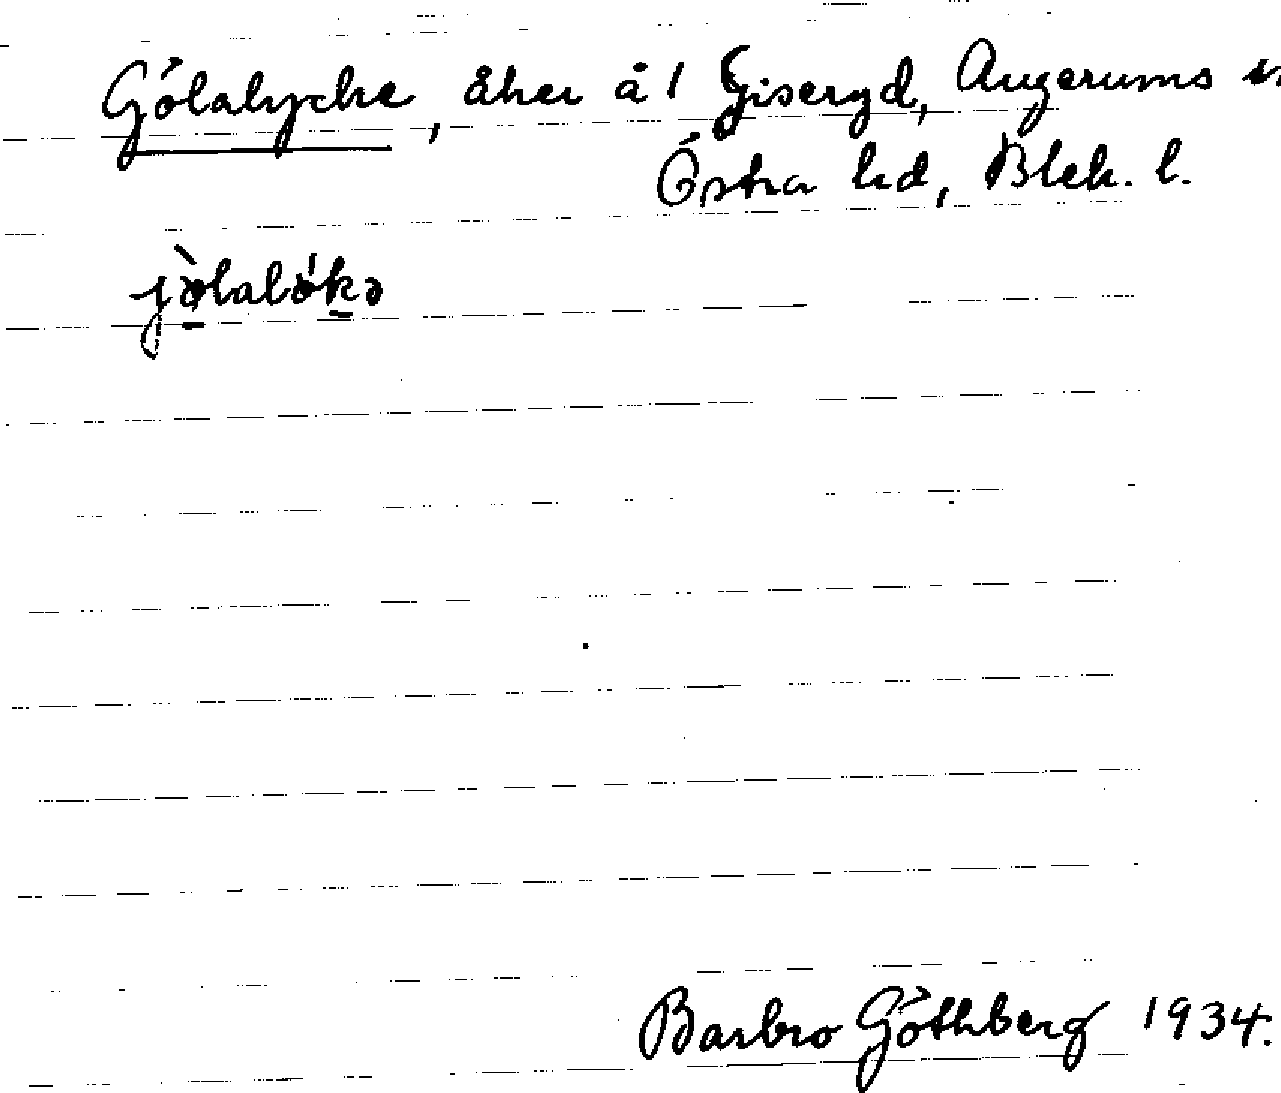 Gölalycke, åker å 1 Giseryd, Augerums s.
Östra hd, Blek. l.
jòlalókə
Barbro Göthberg 1934.